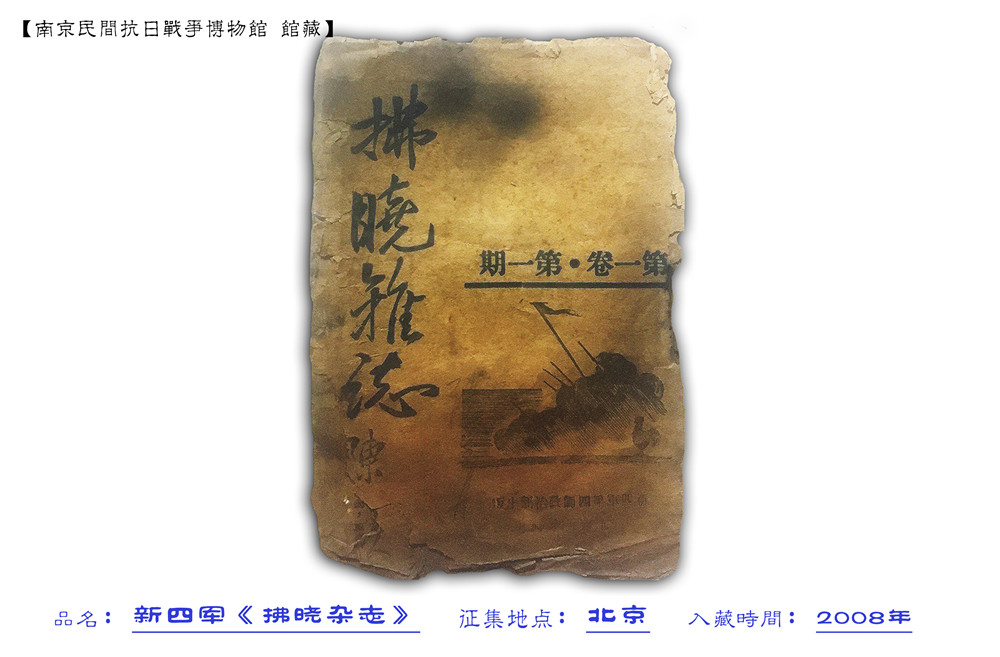 【南京民間抗日戰爭博物館 館藏】
拂曉雜誌
陳
第一卷·第一期
品名：新四军《拂晓杂志》 征集地点：北京 入藏時間：2008年